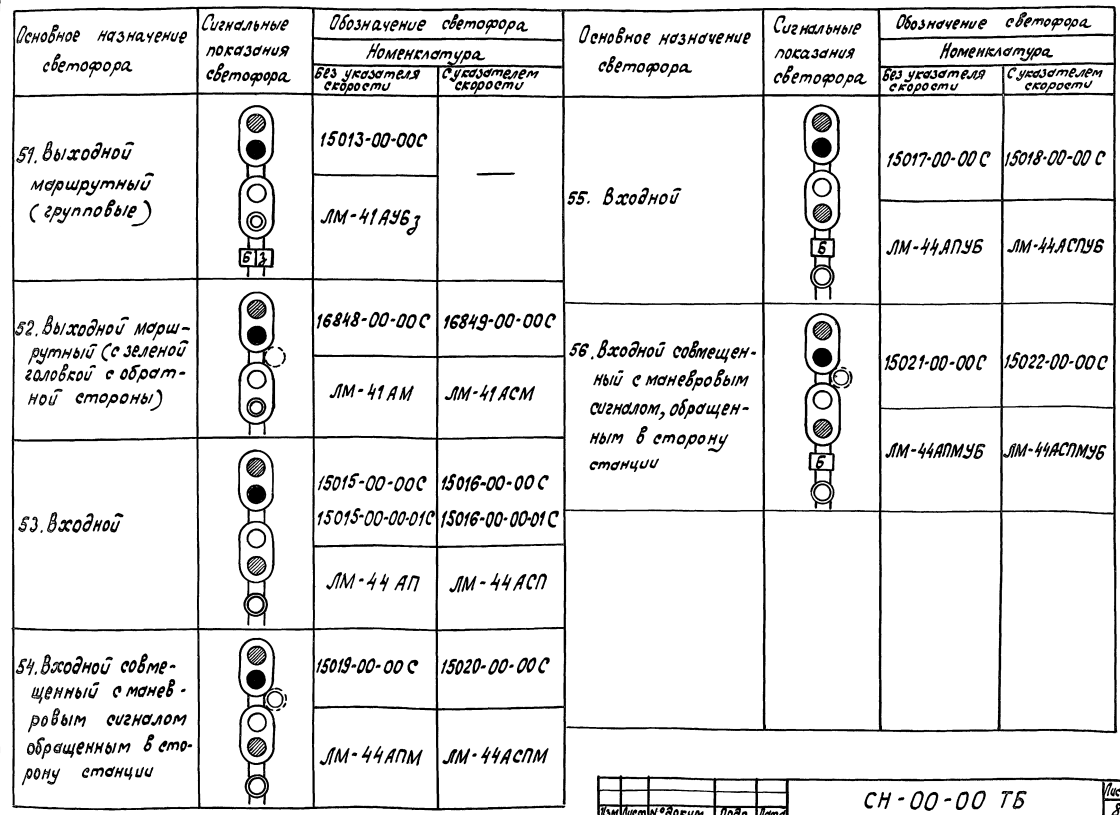 Основное назначение светофора
Сигнальные показания светофора
Обозначение светофора
Номенклатура
Без указателя скорости
С указателем скорости
51. Выходной
маршрутный
(групповые)
Б З
15013-00-00С
—
ЛМ-41АУБз
52. Выходной марш-
рутный (с зеленой
головкой с обрат-
ной стороны)
16848-00-00С
16849-00-00С
ЛМ-41АМ
ЛМ-41АСМ
53. Входной
15015-00-00С
16016-00-00С
15015-00-00-01С
15016-00-00-01С
ЛМ-44АП
ЛМ-44АСП
54. Входной совме-
щенный с манев-
ровым сигналом
обращенным в сто-
рону станции
15019-00-00С
15020-00-00С
ЛМ-44АПМ
ЛМ-44АСПМ
Основное назначение
светофора
Сигнальные
показания
светофора
Обозначение светофора
Номенклатура
Без указателя
скорости
С указателем
скорости
55. Входной
Б
15017-00-00С
15018-00-00С
ЛМ-44АПУБ
ЛМ-44АСПУБ
56. Входной совмещен-
ный с маневровым
сигналом, обращен-
ным в сторону
станции
Б
15021-00-00С
15022-00-00С
ЛМ-44АПМУБ
ЛМ-44АСПМУБ
Изм Лист № докум. Подп. Дата
СН-00-00 ТБ